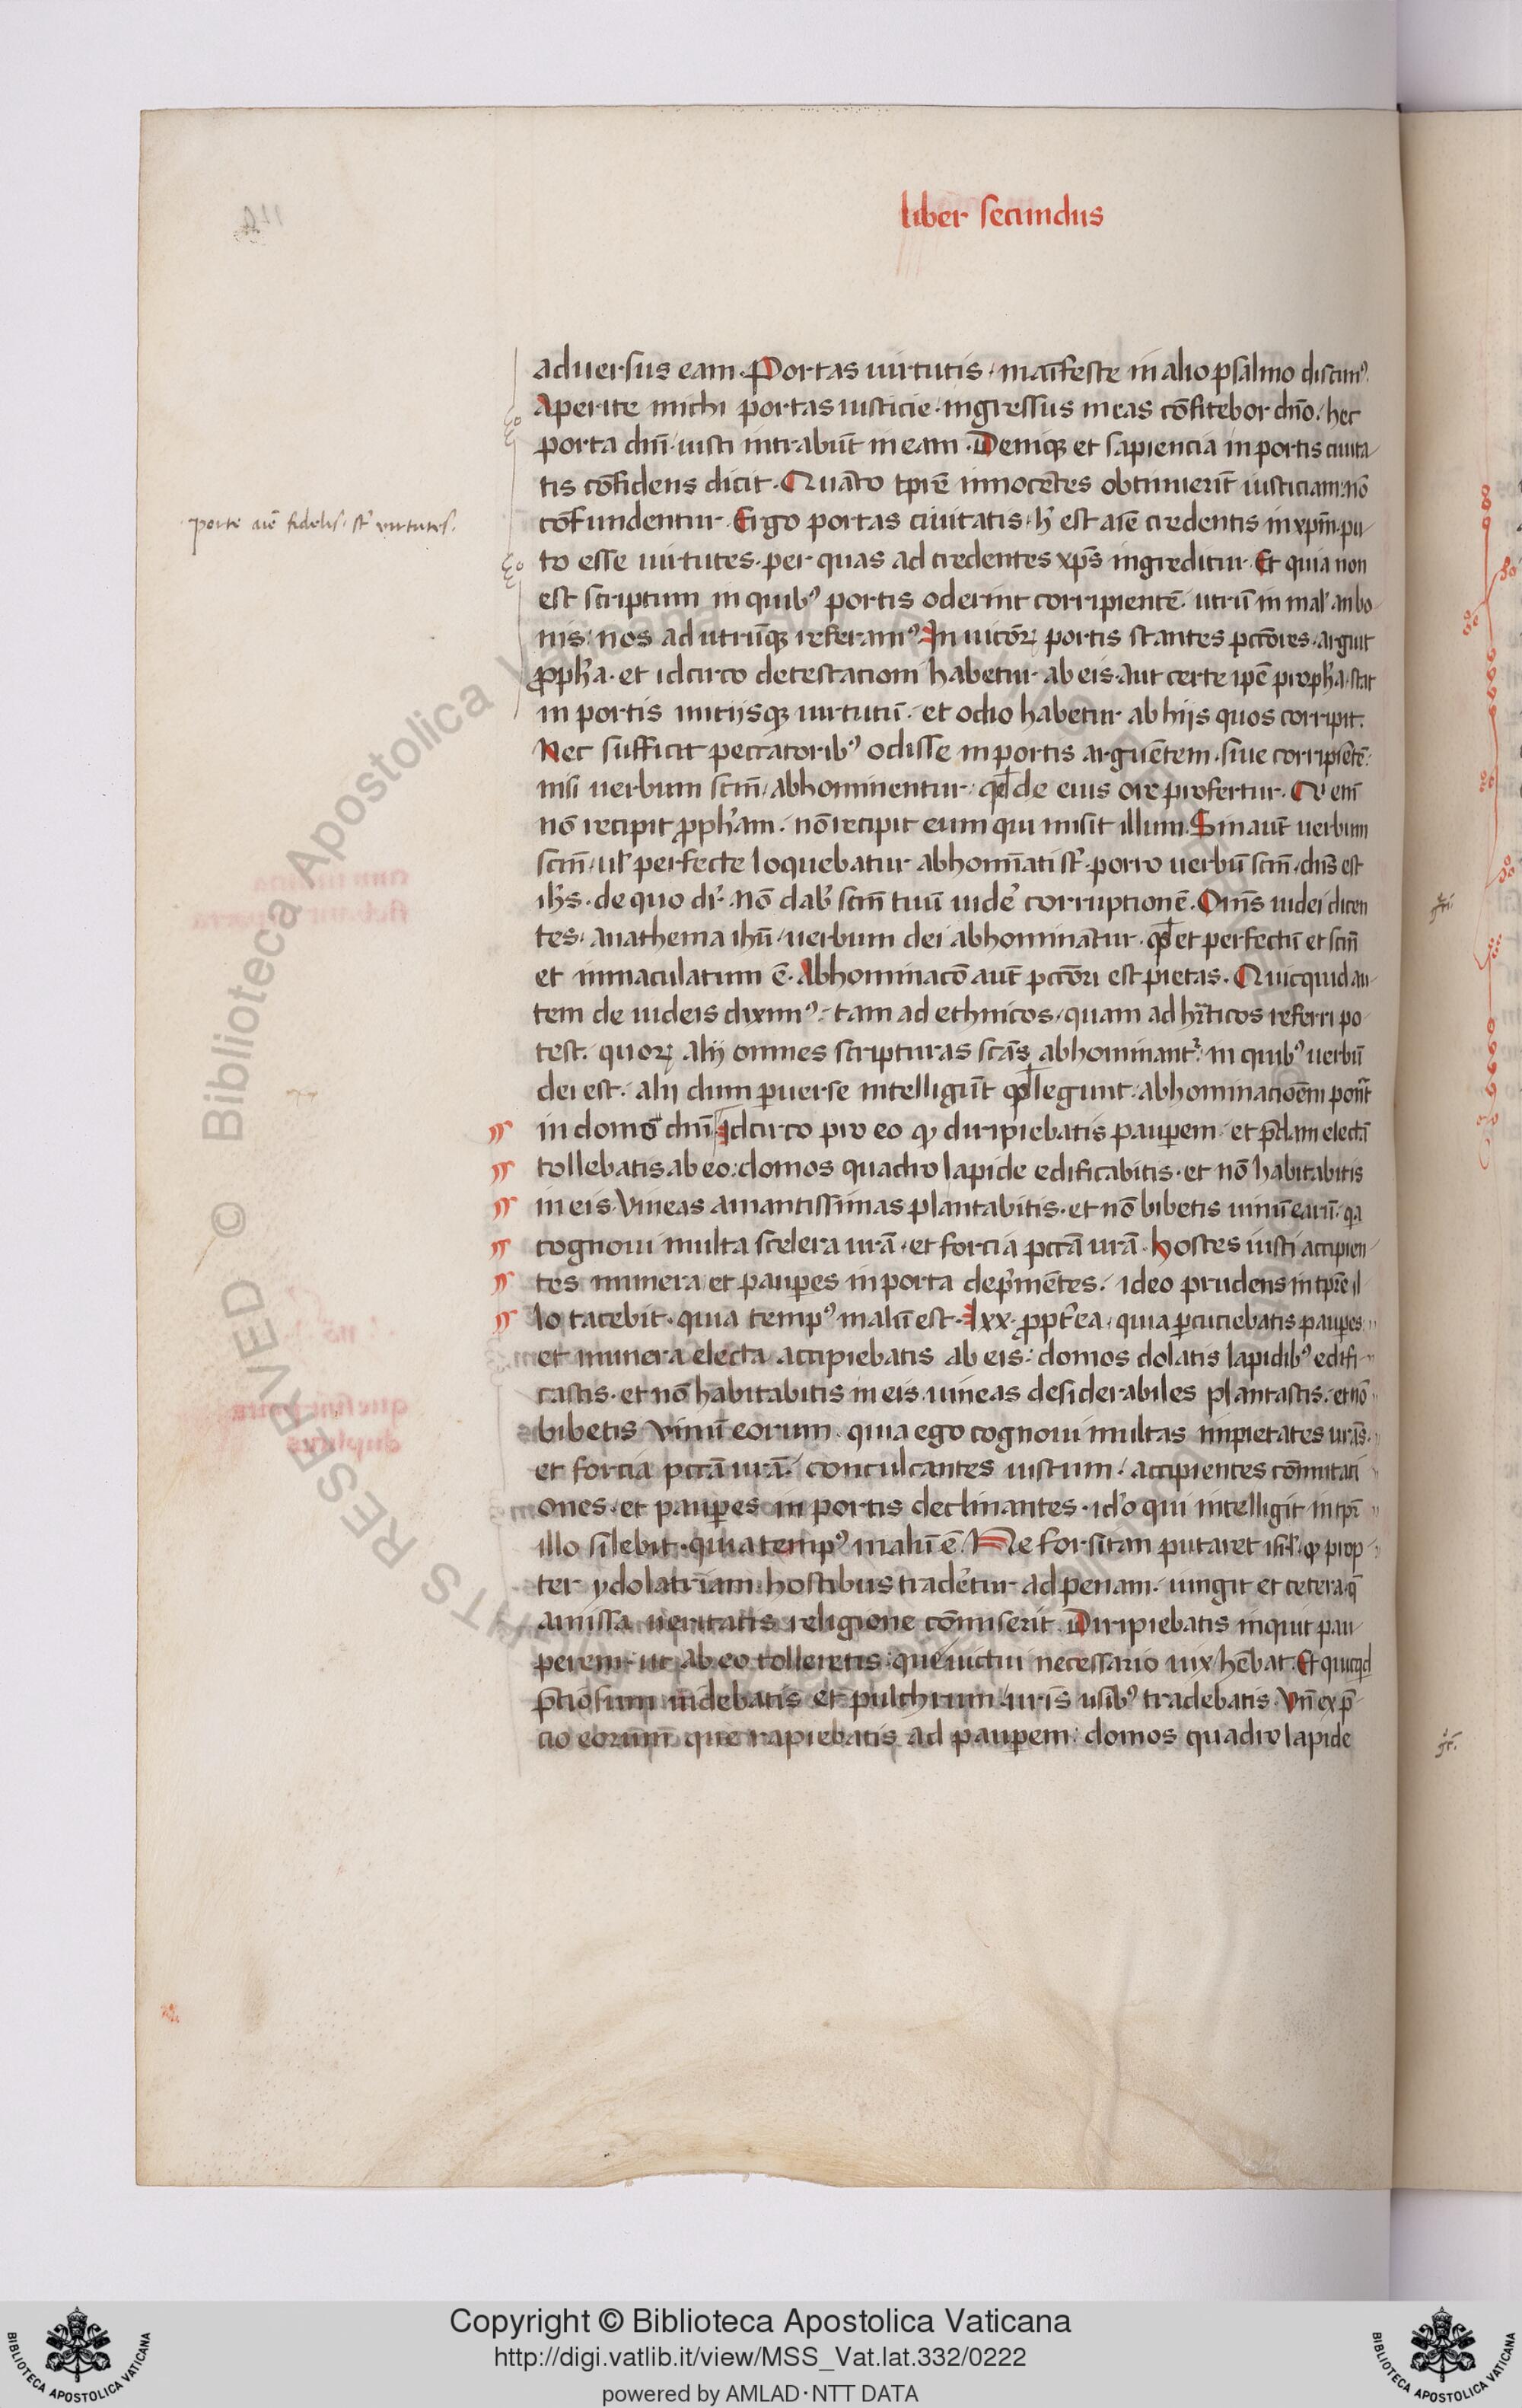 liber secundus
aduersus eam. Portas uirtutis. maīfeste in alio psalmo discim⁹.
Aperite michi portas iusticie. ingressus in eas cōfitebor dn̄o. hec
porta dn̄i. iusti intrabūt in eam. Deniqꝫ et sapiencia in portis ciuita
tis cōfidens dicit. Quāto tp̄re innocētes obtinuerīt iusticiam: nō
cōfundentur. Ergo portas ciuitatis. h̓ est aīe credentis in xp̄m. pu
porte aīe fidelis. st̄ uirtutes.
to esse uirtutes. per quas ad credentes xp̄s ingreditur. Et quia non
est scriptum in quib⁹ portis oderint corripientē. utrū in mal̓ an bo
nis: nos ad utrūqꝫ referam⁹. In uicioꝝ portis stantes pctōres. arguit
ꝓph̓a. et idcirco detestacioni habetur ab eis. aut certe ip̄e proph̓a. stat
in portis initijsqꝫ uirtutū. et odio habetur ab hijs quos corripit.
Nec sufficit peccatorib⁹ odisse in portis arguētem. siue corripiētē.
nisi uerbum sc̄m. abhominentur. qd̄ de eius ore profertur. Q enī
nō recipit ꝓph̓am. nō recipit eum qui misit illum. Sin aut̄ uerbum
sc̄m. ul̓ perfecte loquebatur abhoīati st̄. porro uerbū sc̄m. dn̄s est
ih̄s. de quo dr̄. nō dab̓ sc̄m tuū uide̓ corruptionē. Om̄s iudei dicen
tes. anathema ih̄u. uerbum dei abhominātur. qd̄ et perfectū et sc̄m
et inmaculatum ē. Abhominacō aut̄ pctōri est pietas. Quicquid au
tem de iudeis diximⁿ⁹. tam ad ethnicos. quam ad hr̄ticos referri po
test. quoꝝ alij omnes scripturas sc̄as abhominant̓. in quib⁹ uerbū
dei est. alij dum ꝑuerse intelligūt qd̄ legunt. abhominacioēm ponūt
in domo dn̄i Idcirco pro eo ꝙ diripiebatis pauꝑem. et p̄dam electā
tollebatis ab eo: domos quadro lapide edificabitis. et nō habitabitis
in eis. Vineas amantissimas plantabitis. et nō bibetis uinū earū. qa
cognoui multa scelera ur̄a. et forcia pctā ur̄a. hostes iusti accipien
tes munera et pauꝑes in porta dep̄mētes. ideo prudens in tp̄re il
lo tacebit. quia temp⁹ malū est. lxx. ꝓpt̓ea. quia ꝑcuciebatis pauꝑes
et munera electa accipiebatis ab eis: domos dolatis lapidib⁹ edifi
castis. et nō habitabitis in eis. uineas desiderabiles plantastis. et nō
bibetis vinū eorum. quia ego cognoui multas inpietates ur̄as.
et forcia pctā ur̄a. conculcantes iustum. accipientes cōmutaci
ones. et pauꝑes in portis declinantes. id̓o qui intelligit in tp̄r
illo silebit. quia temp⁹ malū ē. Ne forsitan putaret isr̄l. ꝙ prop
ter ydolatriam hostibus trade̓tur ad penam. iungit et cetera. q̄
amissa ueritatis religione cōmiserit. Diripiebatis inquit pau
perem. ut ab eo tolleretis. que uictui necessario uix hēbat. Et quicqd
p̄ciosum uidebatis et pulchrum. uris̄ usib⁹ tradebatis. Vn̄ ex p̄
cio eorum que rapiebatis ad pauꝑem: domos quadro lapide
Copyright © Biblioteca Apostolica Vaticana
http://digi.vatlib.it/view/MSS_Vat.lat.332/0222
powered by AMLAD·NTT DATA